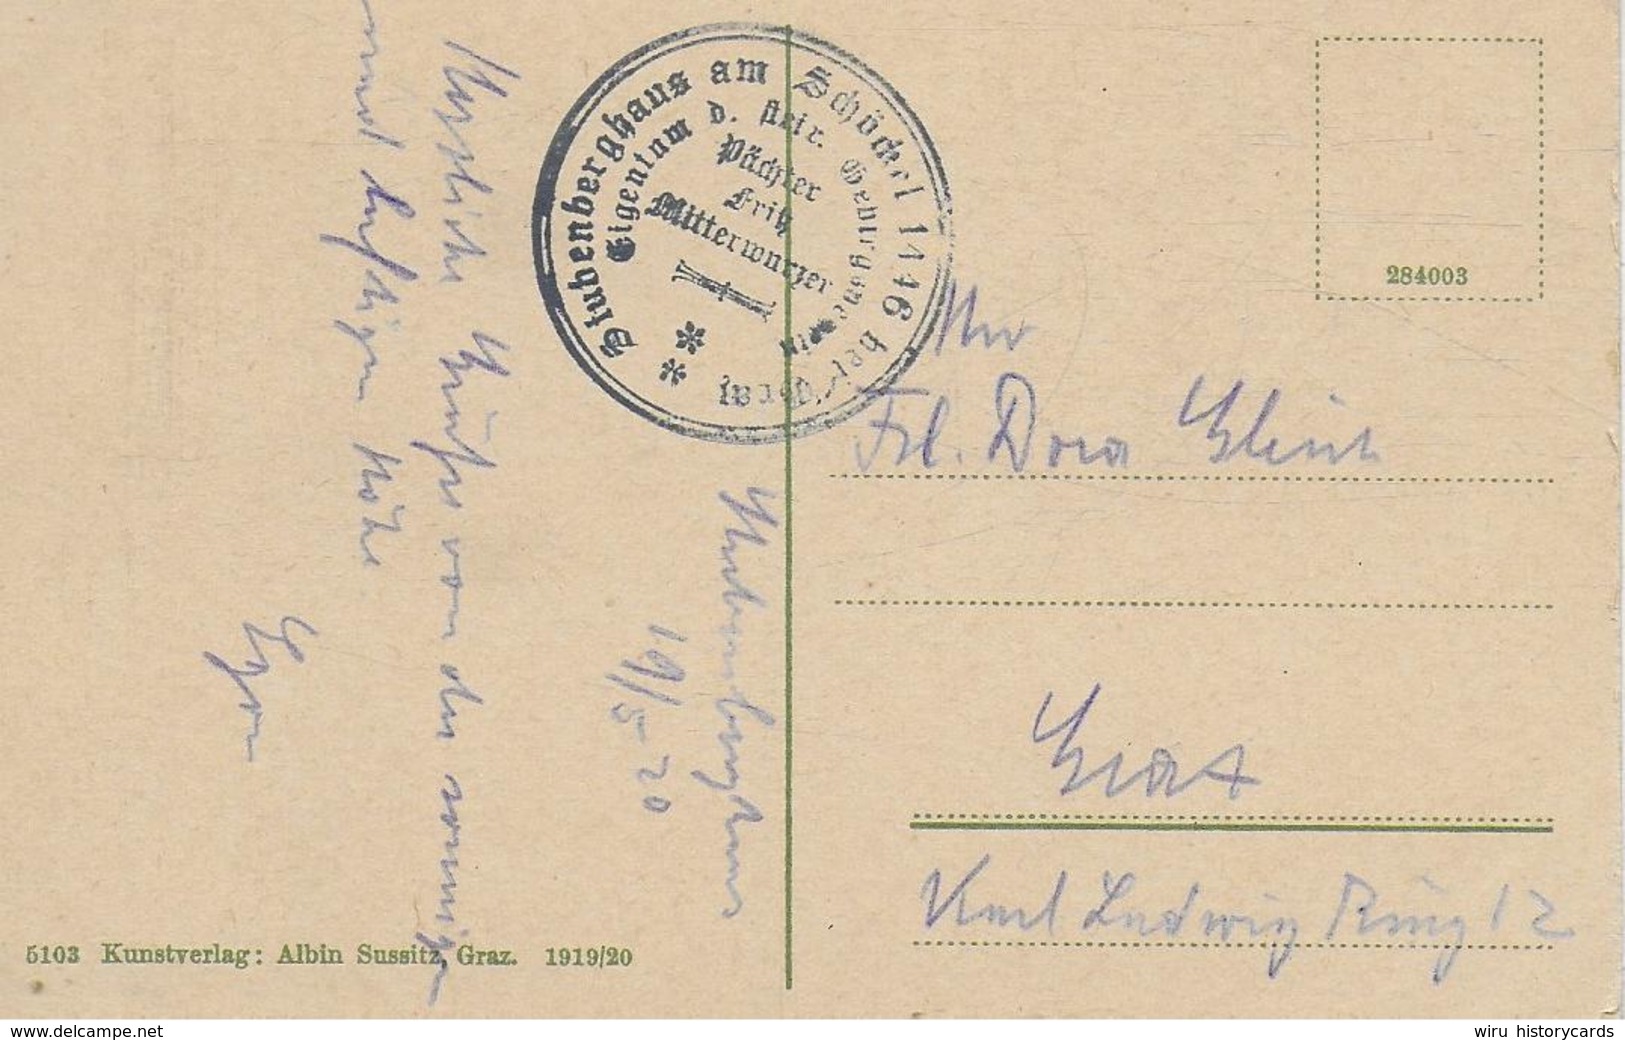 Stubenberghaus am Schöckel 1446 bei Graz
Eigentum d. steir. Gebirgsverein
Pächter
Fritz
Mitterwurzer
284003
Stubenberghaus
19/5 20
Herzliche Grüße von der sonnigen
und luftigen Höhe
Egon
Frl. Dora
Graz
Karl Ludwig Ring 12
5103 Kunstverlag: Albin Sussitz, Graz. 1919/20
www.delcampe.net
wiru historycards